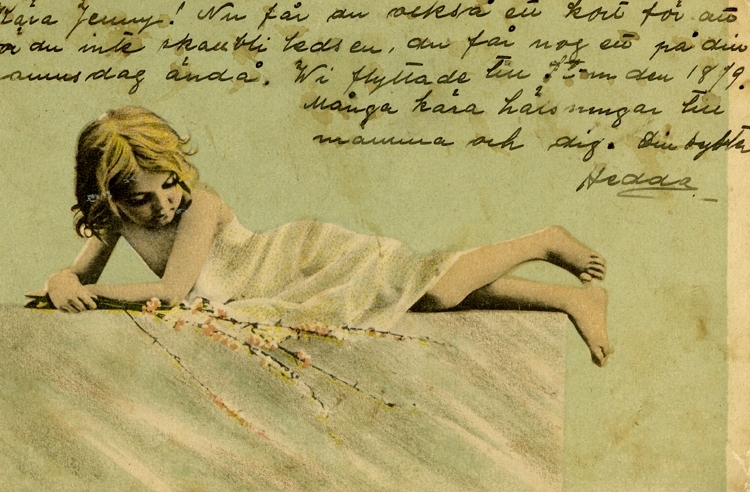 Kära Jenny! Nu får du också ett kort för att
du inte skall bli ledsen, du får nog ett på din
namnsdag ändå. Wi flyttade till den 18/9.
Många kära hälsningar till
mamma och dig. Din syster
Hedda